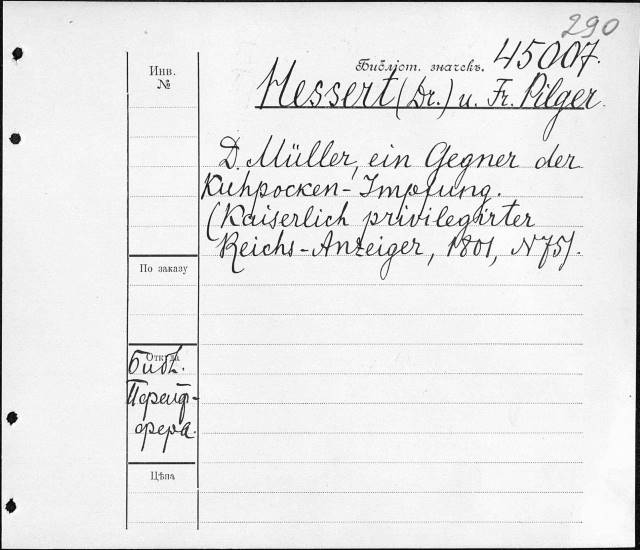 290
Библіот. значекъ. 45007.
Инв.
№
Hessert (Dr.) u. Fr. Pilger.
D. Müller, ein Gegner der
Kuhpocken-Impfung.
(Kaiserlich privilegirter
Reichs-Anzeiger, 1801, N 75).
По заказу
Откуда
Библ.
Пфейф-
фера.
Цѣна